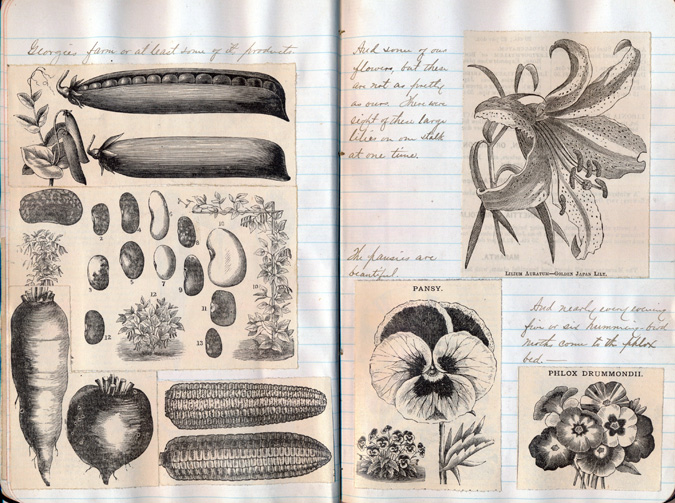 Georgies farm or at least some of its products
1
2
3
4
5
6
7
8
9
10
11
12
12
13
And some of our
flowers, but these
are not as pretty
as ours. There were
eight of these large
lilies on one stalk
at one time.
LILIUM AURATUM—GOLDEN JAPAN LILY.
The pansies are
beautiful.
PANSY.
And nearly every evening
five or six humming-bird
moths come to the phlox
bed
PHLOX DRUMMONDII.